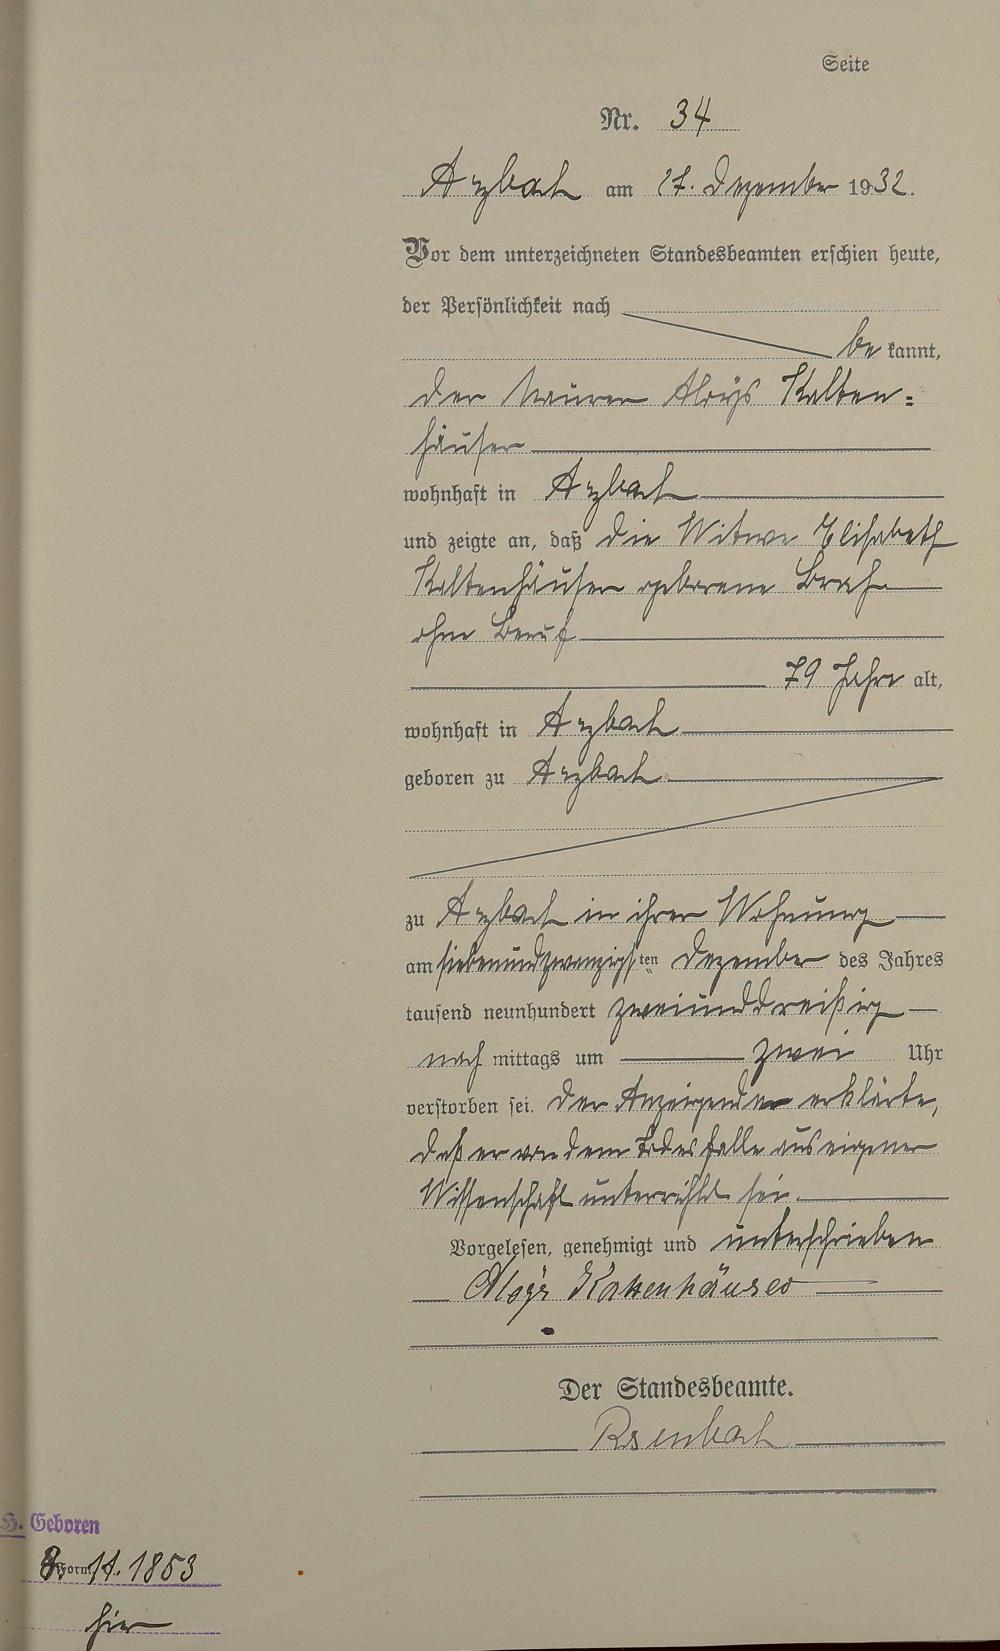 Seite
Nr. 34
Arzbach am 27. Dezember 1932.
Vor dem unterzeichneten Standesbeamten erschien heute,
der Persönlichkeit nach
be kannt,
der Maurer Aloys Kalten=
häuser
wohnhaft in Arzbach
und zeigte an, daß die Witwe Elisabeth
Kaltenhäuser geborene
ohne Beruf
79 Jahre alt,
wohnhaft in Arzbach
geboren zu Arzbach
zu Arzbach in ihrer Wohnung
am siebenundzwanzigsten Dezember des Jahres
tausend neunhundert zweiunddreißig
nach mittags um zwei Uhr
verstorben sei. Der Anzeigende erklärte,
daß er von dem Todesfalle aus eigener
Wissenschaft unterrichtet sei.
Vorgelesen, genehmigt und unterschrieben
Aloys Kaltenhäuser
Der Standesbeamte.
H. Geboren
11. 1853
hier